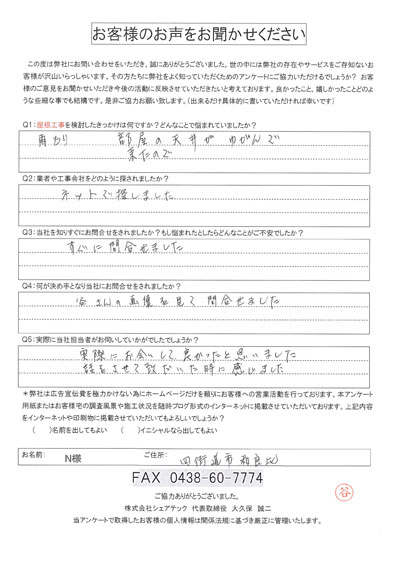 お客様のお声をお聞かせください
この度は弊社にお問い合わせをいただき、誠にありがとうございました。世の中には弊社の存在やサービスをご存知ないお
客様が沢山いらっしゃいます。その方たちに弊社をよく知っていただくためのアンケートにご協力いただけるでしょうか? お客
様のご意見をお聞かせいただき今後の活動に反映させていただきたいと考えております。良かったこと、嬉しかったことどのよ
うな些細な事でも結構です。是非ご協力お願い致します。（出来るだけ具体的に書いていただければ幸いです）
Q1：屋根工事を検討したきっかけは何ですか？どんなことで悩まれていましたか？
雨もり 部屋の天井がゆがんで
来たので
Q2：業者や工事会社をどのように探されましたか？
ネットで探しました
Q3：当社を知りすぐにお問合せをされましたか？もし悩まれたとしたらどんなことがご不安でしたか？
すぐに問合せました
Q4：何が決め手となり当社にお問合せをされましたか？
さんの画像を見て問合せました
Q5：実際に当社担当者がお伺いしていかがでしたでしょうか？
実際にお会いして良かったと思いました
話をさせて頂いた時に感じました
＊弊社は広告宣伝費を極力かけない為にホームページだけを頼りにお客様への営業活動を行っております。本アンケート
用紙またはお客様宅の調査風景や施工状況を随時ブログ形式のインターネットに掲載させていただいております。上記内容
をインターネットや印刷物に掲載させていただいてもよろしいでしょうか？
（　）名前を出してもよい （　）イニシャルなら出してもよい
お名前： N様 ご住所： 四街道市和良比
FAX 0438-60-7774
ご協力ありがとうございました。
株式会社シェアテック 代表取締役 大久保 誠二
当アンケートで取得したお客様の個人情報は関係法規に基づき厳正に管理いたします。